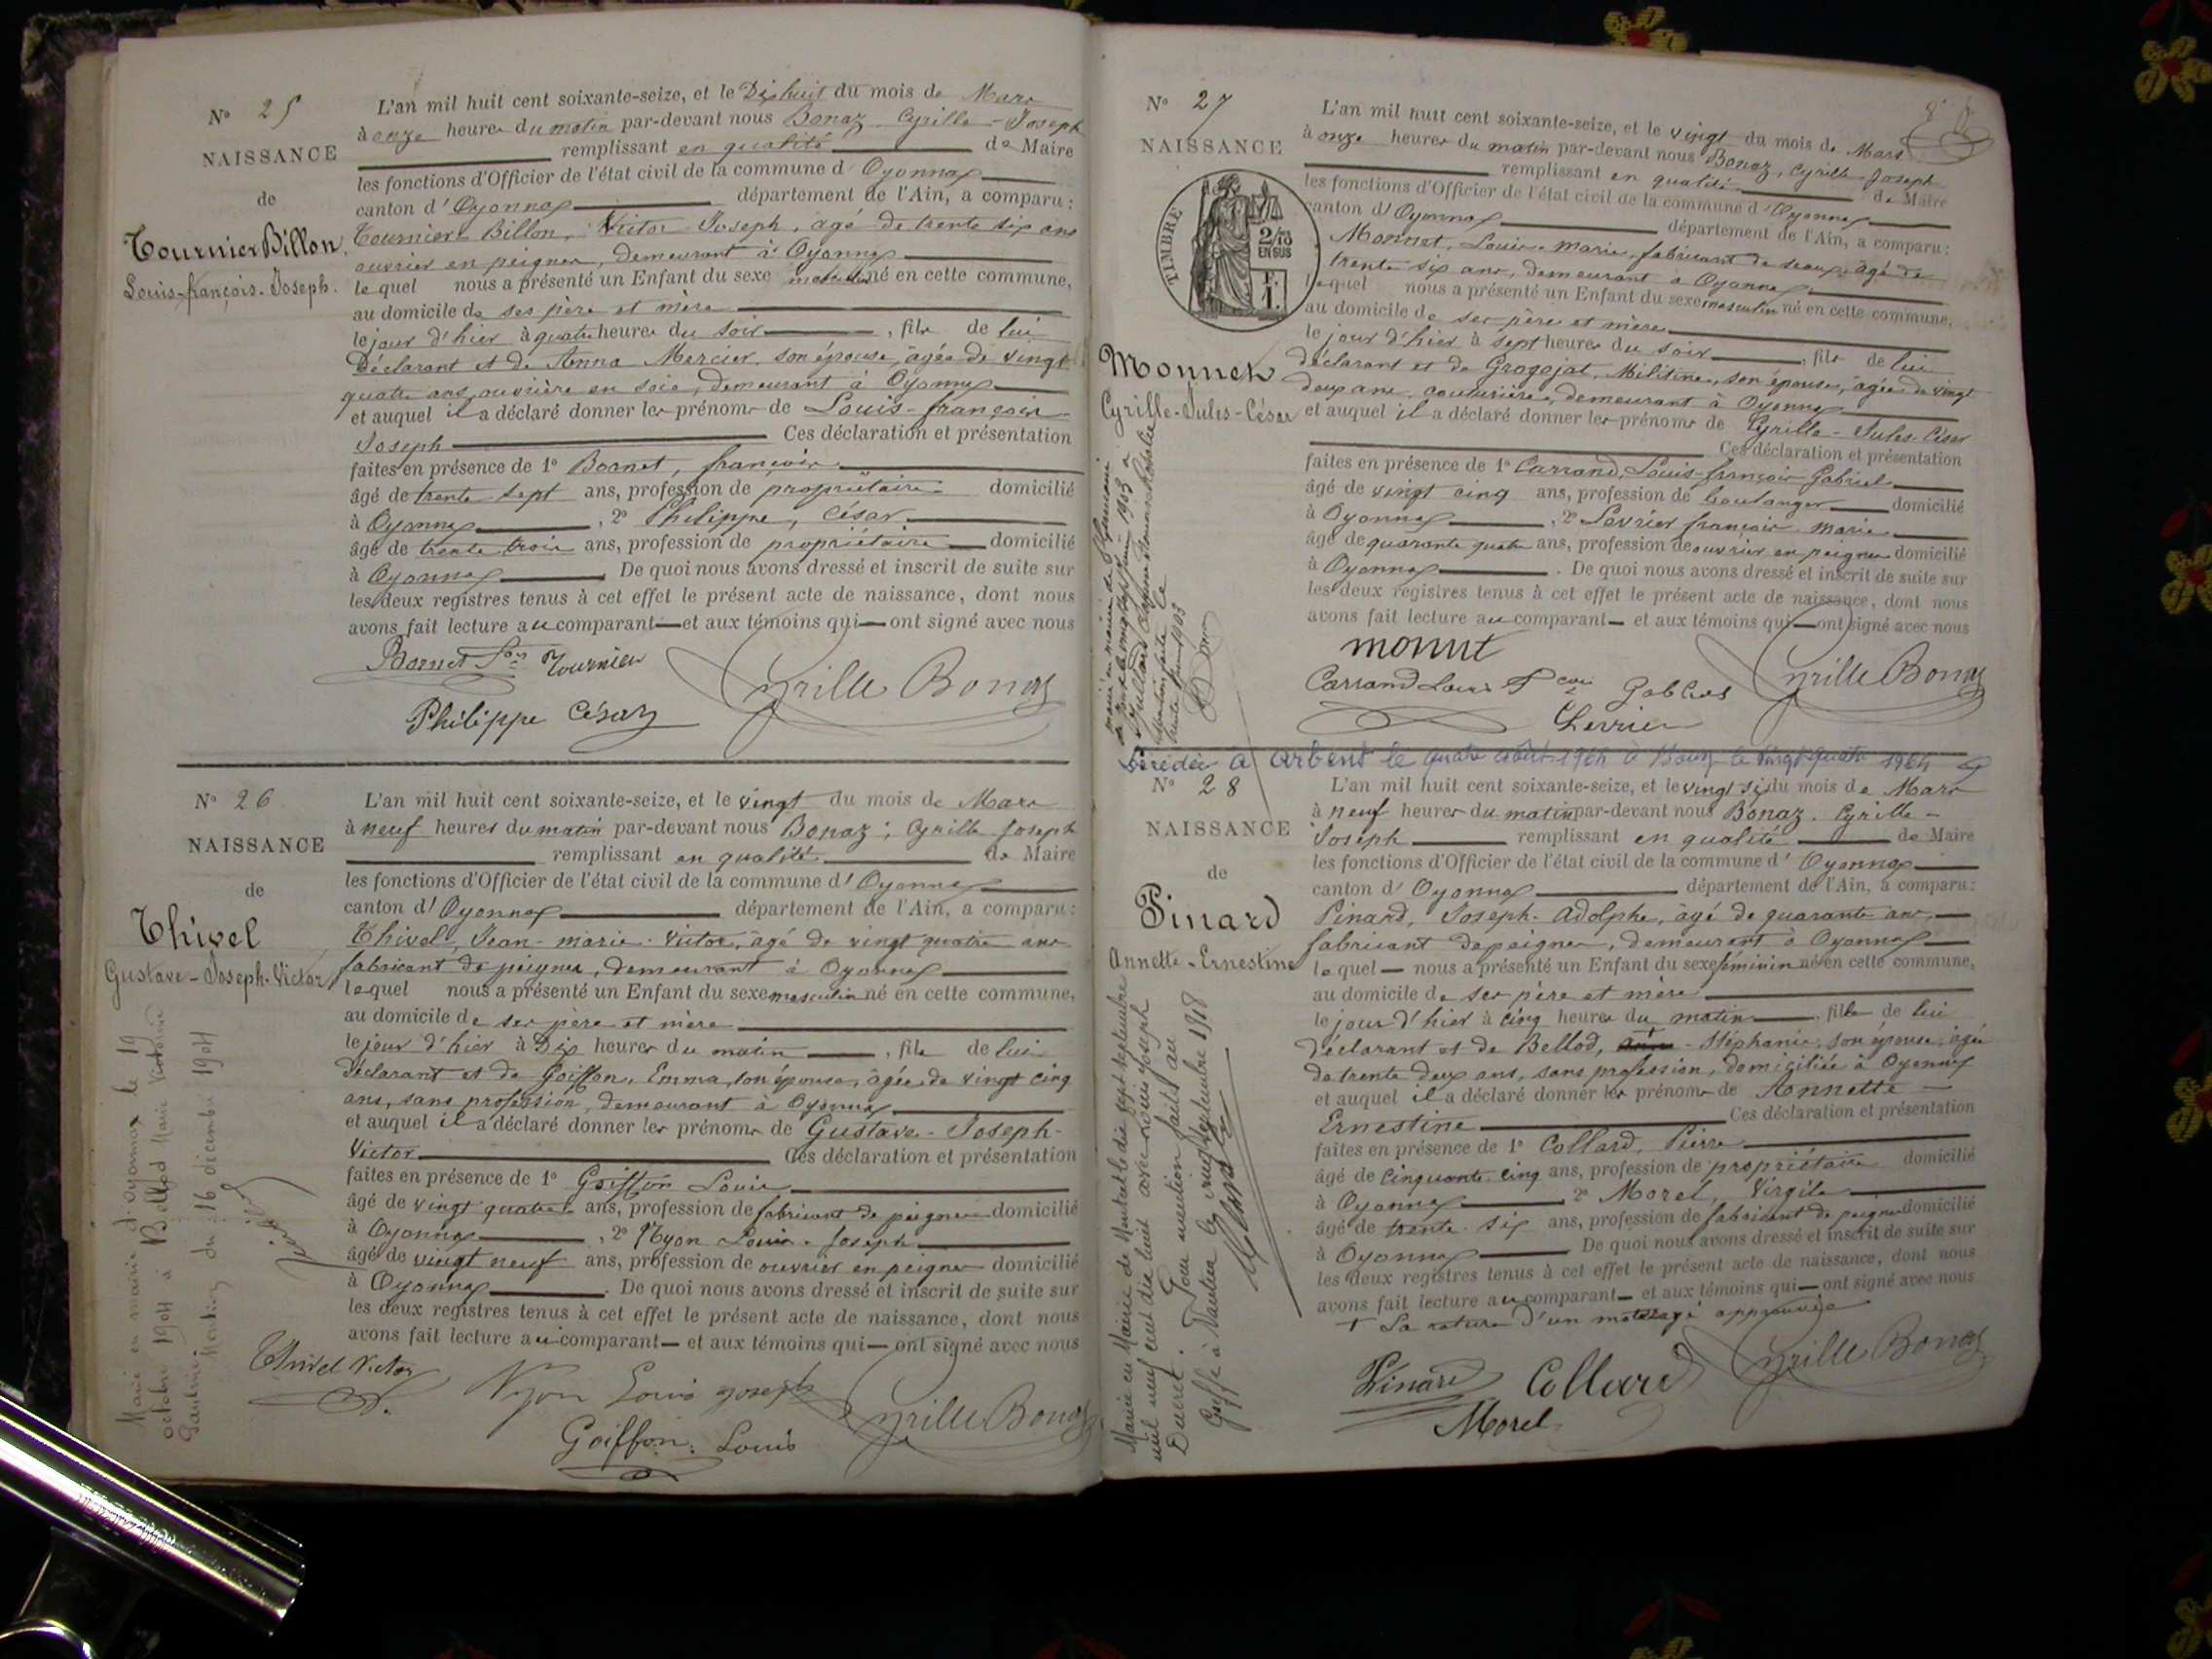 N° 25
NAISSANCE
de
Tournier Billon,
Louis-françois-Joseph.
L'an mil huit cent soixante-seize, et le Dixhuit du mois de Mars
à onze heures du matin par-devant nous Bonaz, Cyrille-Joseph
remplissant en qualité de Maire
les fonctions d'Officier de l'état civil de la commune d'Oyonnax
canton d'Oyonnax département de l'Ain, a comparu :
Tournier Billon, Victor Joseph, âgé de trente six ans
ouvrier en peignes, demeurant à Oyonnax
lequel nous a présenté un Enfant du sexe masculin né en cette commune,
au domicile de ses père et mère
le jour d'hier à quatre heures du soir, fils de lui
Déclarant et de Anna Mercier, son épouse, âgée de vingt
quatre ans, ouvrière en soie, demeurant à Oyonnax
et auquel il a déclaré donner les prénoms de Louis-françois
Joseph Ces déclaration et présentation
faites en présence de 1° Bornet, françois
âgé de trente sept ans, profession de propriétaire domicilié
à Oyonnax, 2° Philippe, César
âgé de trente trois ans, profession de propriétaire domicilié
à Oyonnax De quoi nous avons dressé et inscrit de suite sur
les deux registres tenus à cet effet le présent acte de naissance, dont nous
avons fait lecture au comparant et aux témoins qui ont signé avec nous
Bornet Tournier
Cyrille Bonaz
Philippe César
N° 26
NAISSANCE
de
Thivel
Gustave-Joseph-Victor
Marié en mairie d'Oyonnax le 19
octobre 1904 à Bellod Marie Victorine
du 16 décembre 1904
L'an mil huit cent soixante-seize, et le vingt du mois de Mars
à neuf heures du matin par-devant nous Bonaz, Cyrille Joseph
remplissant en qualité de Maire
les fonctions d'Officier de l'état civil de la commune d'Oyonnax
canton d'Oyonnax département de l'Ain, a comparu :
Thivel, Jean-marie-Victor, âgé de vingt quatre ans
fabricant de peignes, demeurant à Oyonnax
lequel nous a présenté un Enfant du sexe masculin né en cette commune,
au domicile de ses père et mère
le jour d'hier à Dix heures du matin, fils de lui
déclarant et de Goiffon, Emma, son épouse, âgée de vingt cinq
ans, sans profession, demeurant à Oyonnax
et auquel il a déclaré donner les prénoms de Gustave-Joseph-
Victor Ces déclaration et présentation
faites en présence de 1° Goiffon Louis
âgé de vingt quatre ans, profession de fabricant de peignes domicilié
à Oyonnax, 2° Nyon Louis-Joseph
âgé de vingt neuf ans, profession de ouvrier en peignes domicilié
à Oyonnax. De quoi nous avons dressé et inscrit de suite sur
les deux registres tenus à cet effet le présent acte de naissance, dont nous
avons fait lecture au comparant et aux témoins qui ont signé avec nous
Thivel Victor
Nyon Louis joseph
Cyrille Bonaz
Goiffon Louis
N° 27
NAISSANCE
TIMBRE
2/10
EN SUS
F.
1.
Monnet
Cyrille-Jules-César
L'an mil huit cent soixante-seize, et le vingt du mois de Mars
à onze heures du matin par-devant nous Bonaz, Cyrille-Joseph
remplissant en qualité de Maire
les fonctions d'Officier de l'état civil de la commune d'Oyonnax
canton d'Oyonnax département de l'Ain, a comparu :
Monnet, Louis-marie, fabricant de seaux, âgé de
trente six ans, demeurant à Oyonnax
lequel nous a présenté un Enfant du sexe masculin né en cette commune,
au domicile de ses père et mère
le jour d'hier à sept heures du soir, fils de lui
déclarant et de Grogojat, Militine, son épouse, âgée de vingt
deux ans, couturière, demeurant à Oyonnax
et auquel il a déclaré donner les prénoms de Cyrille-Jules-César
Ces déclaration et présentation
faites en présence de 1° Carrand, Louis-françois Gabriel
âgé de vingt cinq ans, profession de boulanger domicilié
à Oyonnax, 2° Levrier françois marie
âgé de quarante quatre ans, profession de ouvrier en peignes domicilié
à Oyonnax. De quoi nous avons dressé et inscrit de suite sur
les deux registres tenus à cet effet le présent acte de naissance, dont nous
avons fait lecture au comparant et aux témoins qui ont signé avec nous
monnet
Carrand Louis
Cyrille Bonaz
Levrier
Décédé à Arbent le quatre août 1964 le vingt quatre 1964
N° 28
NAISSANCE
de
Pinard
Annette-Ernestine
Mariée en Mairie de le dix sept septembre
mil neuf cent dix huit avec Joseph
Ducret. Pour mention faite au
Greffe à Nantua le cinq septembre 1918
L'an mil huit cent soixante-seize, et le vingt six du mois de Mars
à neuf heures du matin par-devant nous Bonaz, Cyrille-
Joseph remplissant en qualité de Maire
les fonctions d'Officier de l'état civil de la commune d'Oyonnax
canton d'Oyonnax département de l'Ain, a comparu :
Pinard, Joseph-Adolphe, âgé de quarante ans,
fabricant de peignes, demeurant à Oyonnax
lequel nous a présenté un Enfant du sexe féminin né en cette commune,
au domicile de ses père et mère
le jour d'hier à cinq heures du matin, fille de lui
déclarant et de Bellod, Stéphanie, son épouse, âgée
de trente deux ans, sans profession, domiciliée à Oyonnax
et auquel il a déclaré donner les prénoms de Annette
Ernestine Ces déclaration et présentation
faites en présence de 1° Collard, Pierre
âgé de cinquante cinq ans, profession de propriétaire domicilié
à Oyonnax 2° Morel, Virgile
âgé de trente six ans, profession de fabricant de peignes domicilié
à Oyonnax De quoi nous avons dressé et inscrit de suite sur
les deux registres tenus à cet effet le présent acte de naissance, dont nous
avons fait lecture au comparant et aux témoins qui ont signé avec nous
+ La rature d'un mot rayé approuvée
Pinard Collard Cyrille Bonaz
Morel